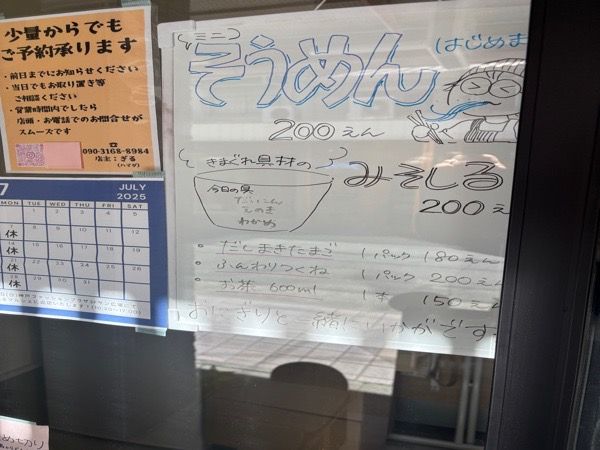 少量からでも
ご予約承ります
・前日までにお知らせください
・当日でもお取り置き等
ご相談ください
・営業時間内でしたら
店頭・お電話でのお問合せが
スムーズです
☎
090-3168-8984
店主：ぎる
7
JULY
2025
MON TUE WED THU FRI SAT
1 2 3 4 5
休 8 9 10 11 12
休 15 16 17 18 19
休 22 23 24 25 26
休 29 30 31
(ミニ)
そうめん
(はじめま
200えん
(きまぐれ具材の
みそしる
200え
今日の具
だいこん
えのき
わかめ
・だしまきたまご 1パック 180えん
・ふんわりつくね 1パック 200えん
・お茶 600ml 1本 150えん
おにぎりと一緒にいかがです